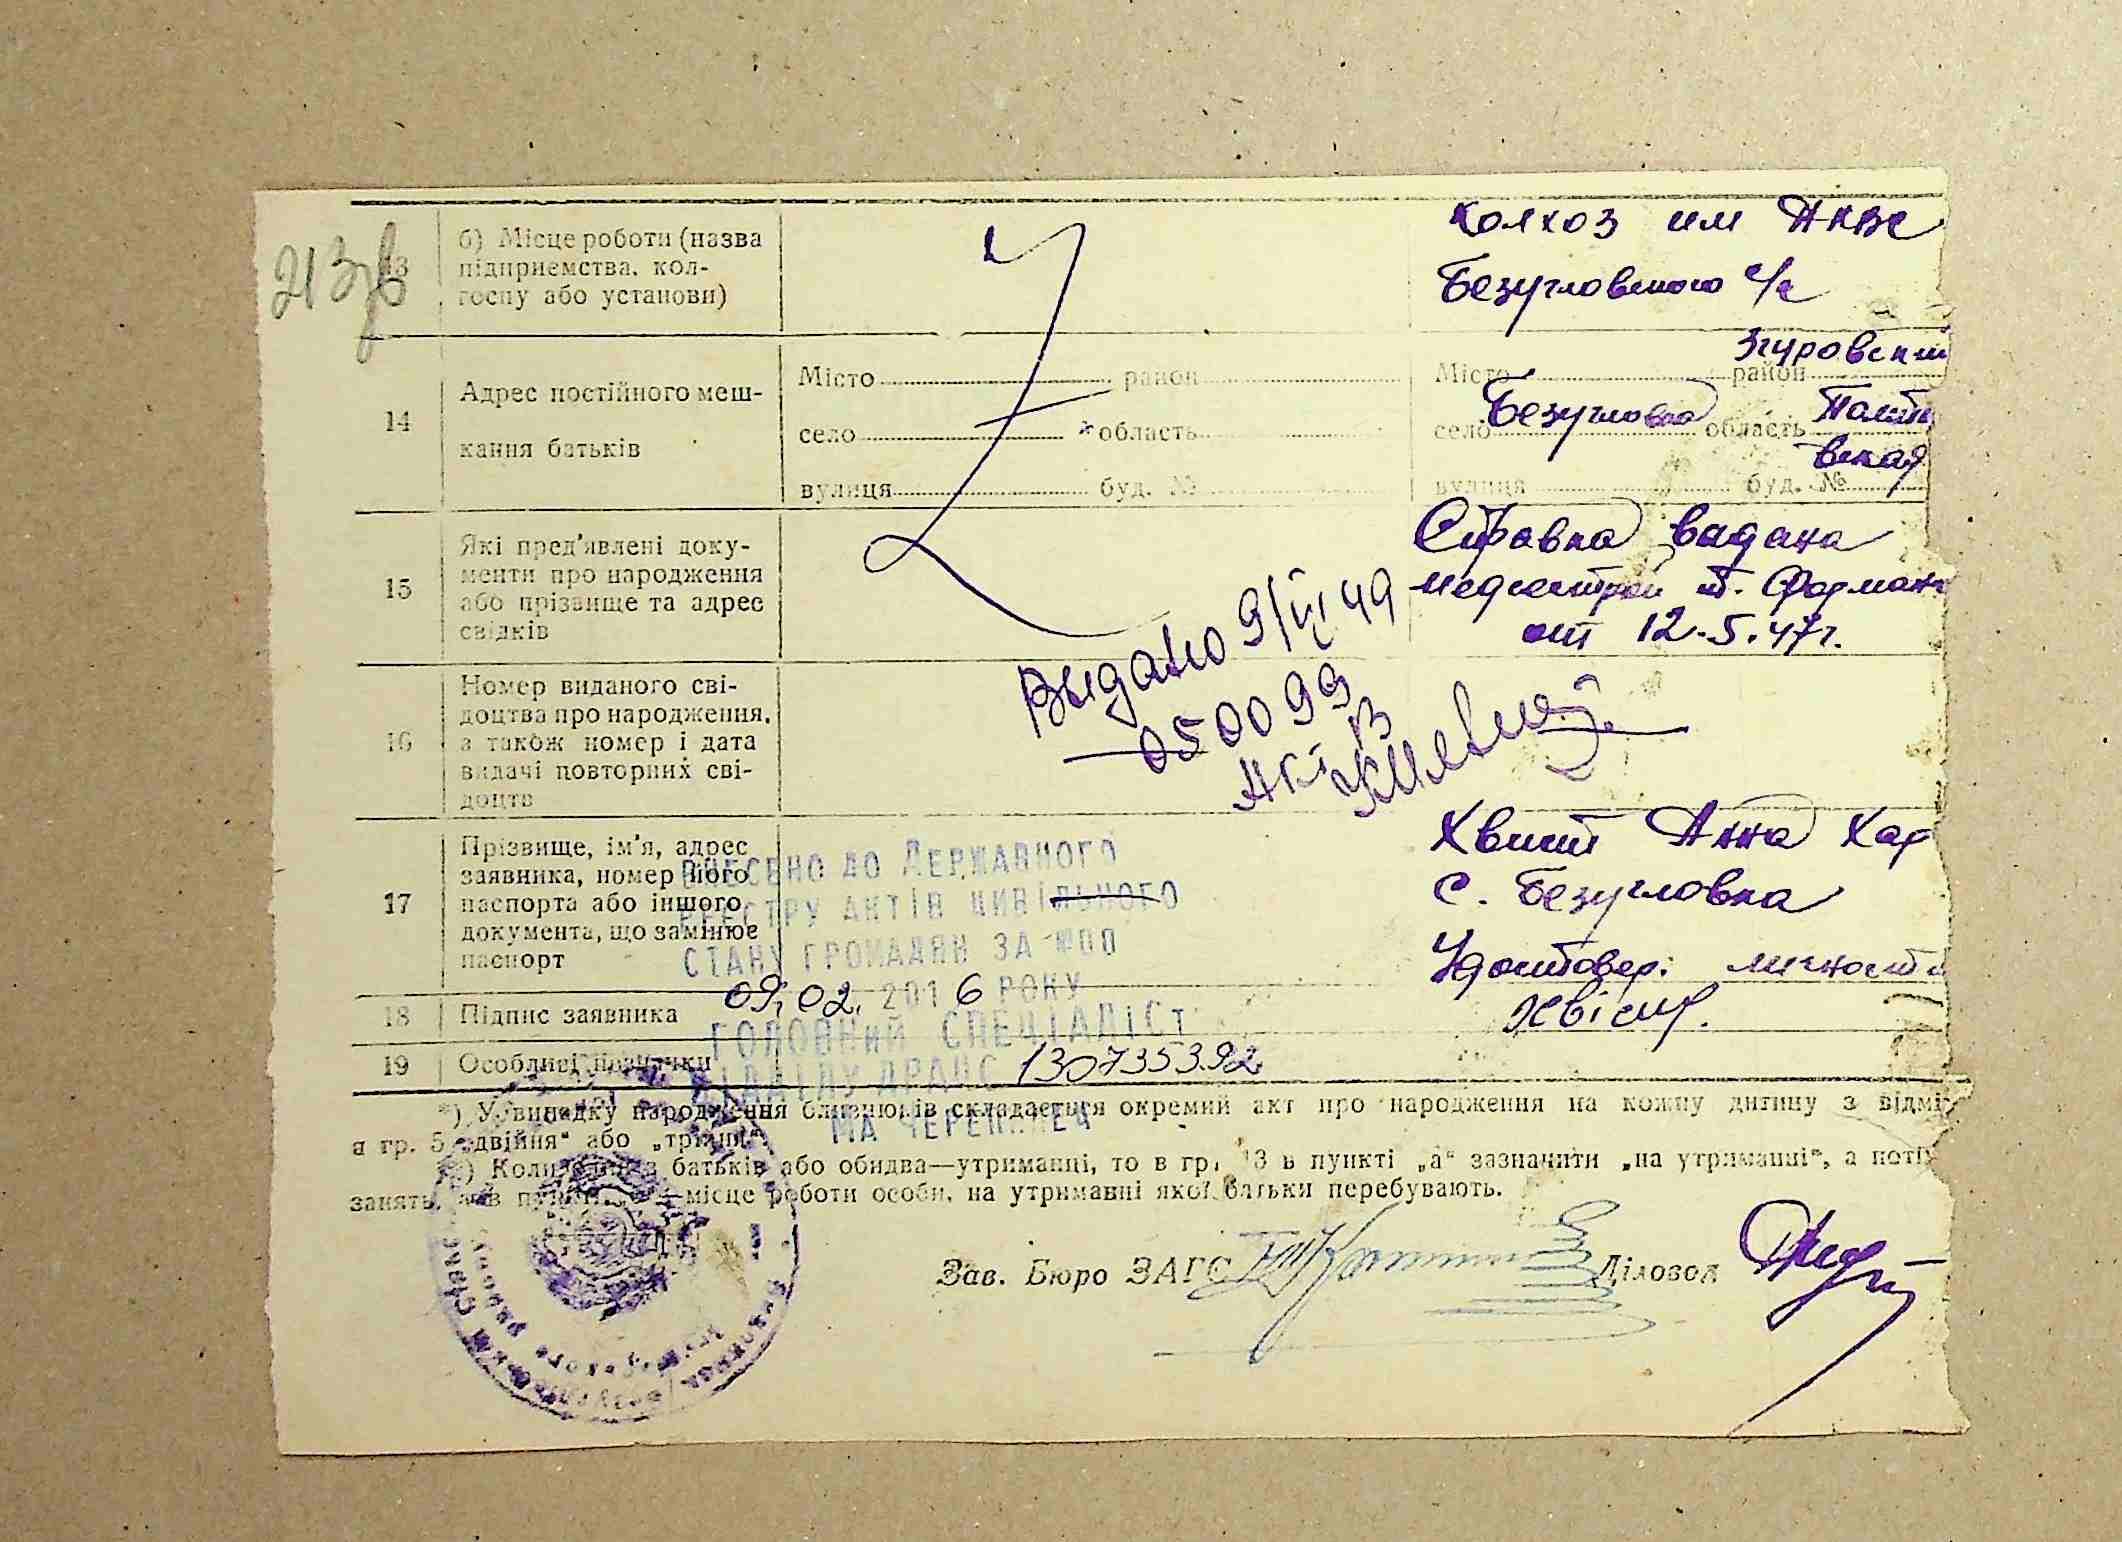 21 зв
13
б) Місце роботи (назва
підприємства, кол-
госпу або установи)
колхоз им
Безугловского с/с
14
Адрес постійного меш-
кання батьків
Місто район
село область
вулиця буд. №
Місто район Згуровский
село Безугловка область Полта
вская
вулиця буд. №
15
Які пред'явлені доку-
менти про народження
або прізвище та адрес
свідків
Справка видана
медсестрой т.
от 12.5.47г.
16
Номер виданого сві-
доцтва про народження,
а також номер і дата
видачі повторних сві-
доцтв
Выдано 9/VI 49
050099
17
Прізвище, ім'я, адрес
заявника, номер його
паспорта або іншого
документа, що замінює
паспорт
Хвист Анна Хар
с. Безугловка
Удостовер. личности
ВНЕСЕНО ДО ДЕРЖАВНОГО
РЕЄСТРУ АКТІВ ЦИВІЛЬНОГО
СТАНУ ГРОМАДЯН ЗА
09. 02. 2016 РОКУ
ГОЛОВНИЙ СПЕЦІАЛІСТ
ВІДДІЛУ ДРАЦС 130735392
МА ЧЕРЕПИНЕЦ
18
Підпис заявника
Хвіст.
19
Особливі позначки
*) У випадку народження близнюків складається окремий акт про народження на кожну дитину з відмі
в гр. 5 „двійня" або „трійня".
**) Коли один з батьків або обидва—утриманці, то в гр. 13 в пункті „а" зазначити „на утриманні", а поті
занять, а в пункті місце роботи особи, на утриманні якої батьки перебувають.
Зав. Бюро ЗАГС Діловод